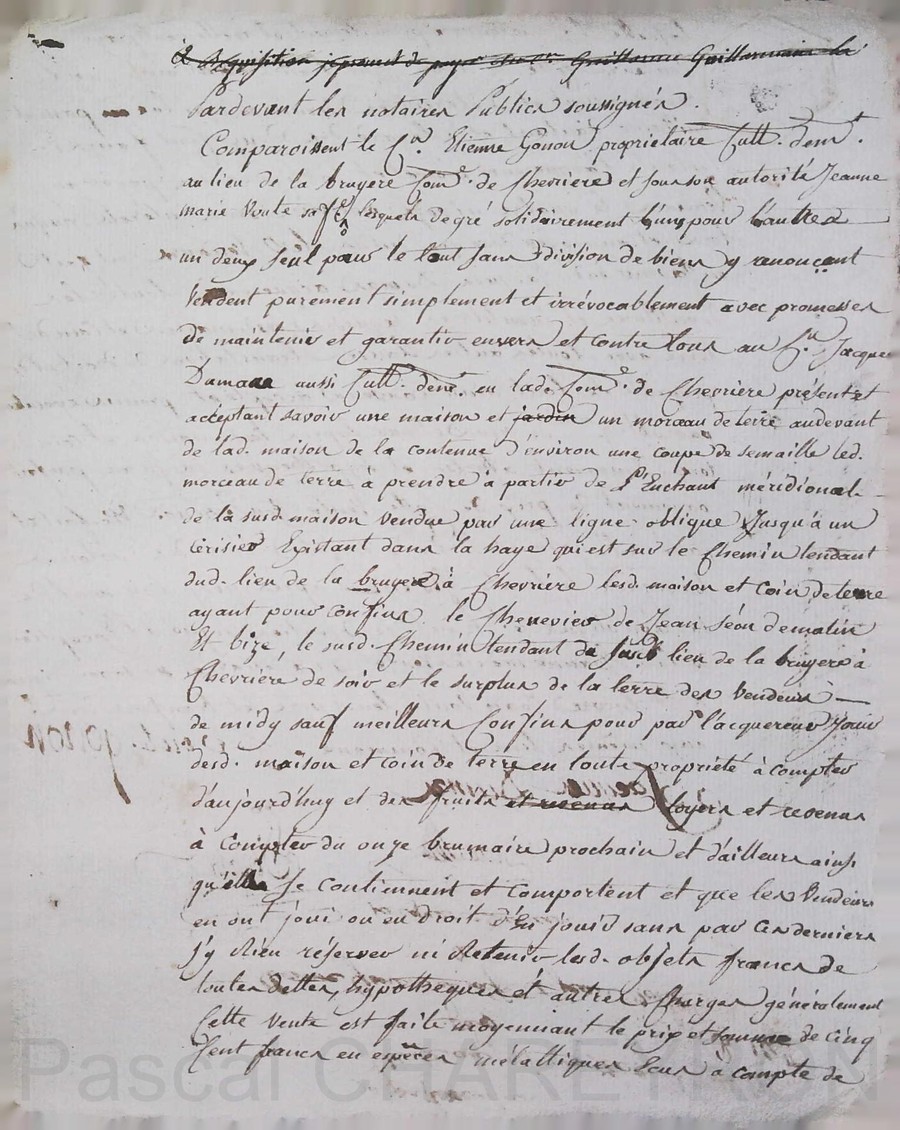 Pardevant les notaires Publics soussignés.
Comparoissent le Cn. Etienne Gonon propriétaire Cult. demt.
au lieu de la bruyere Come. de Chevriere et sous son autorité Jeanne
marie Voute sa fe lesquels de gré solidairement l'un pour l'autre
un deux seul pour le tout sans division de biens y renonçant
Vendent purement simplement et irrévocablement avec promesses
de maintenir et garantir envers et contre tous au Cn. Jacque
aussi Cult. demt. en lade. Come. de Chevriere présent et
acceptant savoir une maison et jardin un morceau de terre audevant
de lad. maison de la contenue d'environ une coupe de semaille led.
morceau de terre à prendre à partir de l'Enchant méridional
de la susd. maison vendue par une ligne oblique Jusqu'à un
Cerisier Existant dans la haye qui est sur le Chemin tendant
dud. lieu de la bruyere à Chevriere lesd. maison et coin de terre
ayant pour confins le Chenevier de Jean Séon de matin
Et bize, le susd. Chemin tendant du susd lieu de la bruyere à
Chevriere de soir et le surplus de la terre des Vendeurs
de midy sauf meilleurs Confins pour par l'acquereur Jouir
desd. maison et coin de terre en toute propriété à compter
d'aujourd'huy et des fruits et revenus loyers et revenus
à Compter du onze brumaire prochain et d'ailleurs ainsi
qu'elles Se contiennent et comportent et que les Vendeurs
en ont joui ou eu droit d'En jouir sans par Ces derniers
s'y Rien réserver ni Retenir lesd. objets francs de
toutes dettes, hypotheques et autres Charges généralement
Cette vente est faite moyennant le prix et somme de cinq
Cent francs en espèces métalliques Sur à compte de
Pascal CHAREYRON